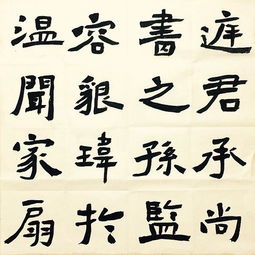 君承尚
書之孫監
容貇瑋於
温聞家扇